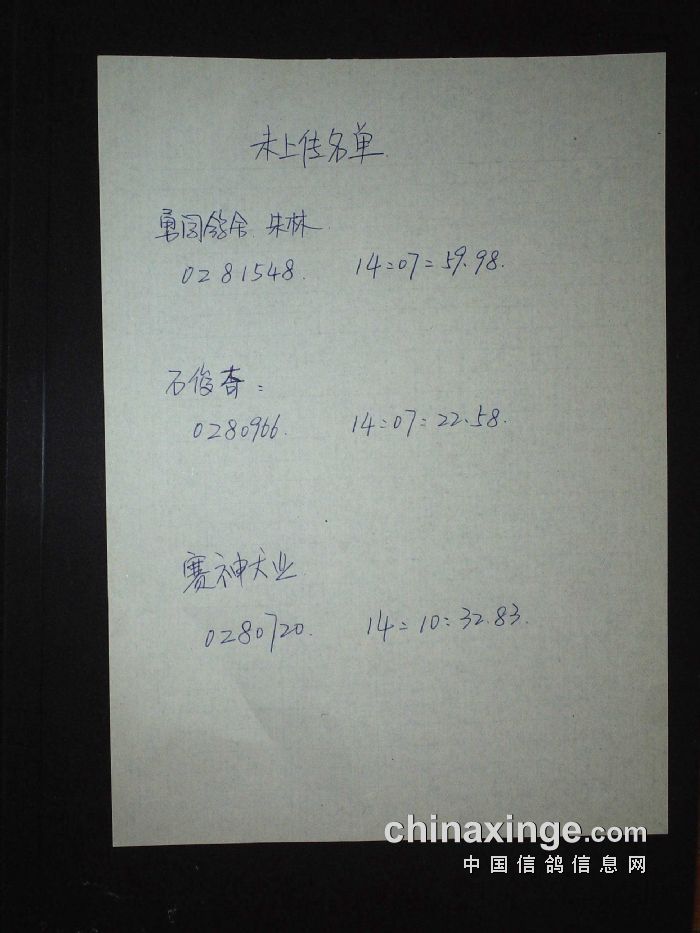 未上传名单
勇闯鸽舍 朱林
0281548. 14:07:59.98.
石俊杳:
0280966. 14:07:22.58.
赛神大业
0280720. 14:10:32.83.
chinaxinge.com
中国信鸽信息网